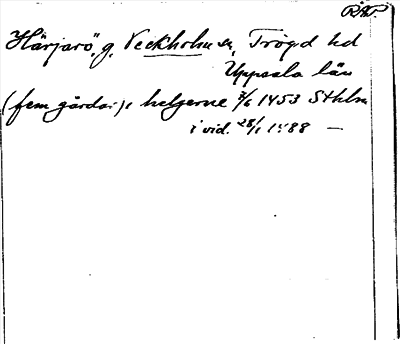 RAP.
Härjarö, g. Veckholm sn, Trögd hd
Uppsala län
(fem gårdar), helgerne 7/6 1453 Sthlm
i vid. 28/1 1588 —